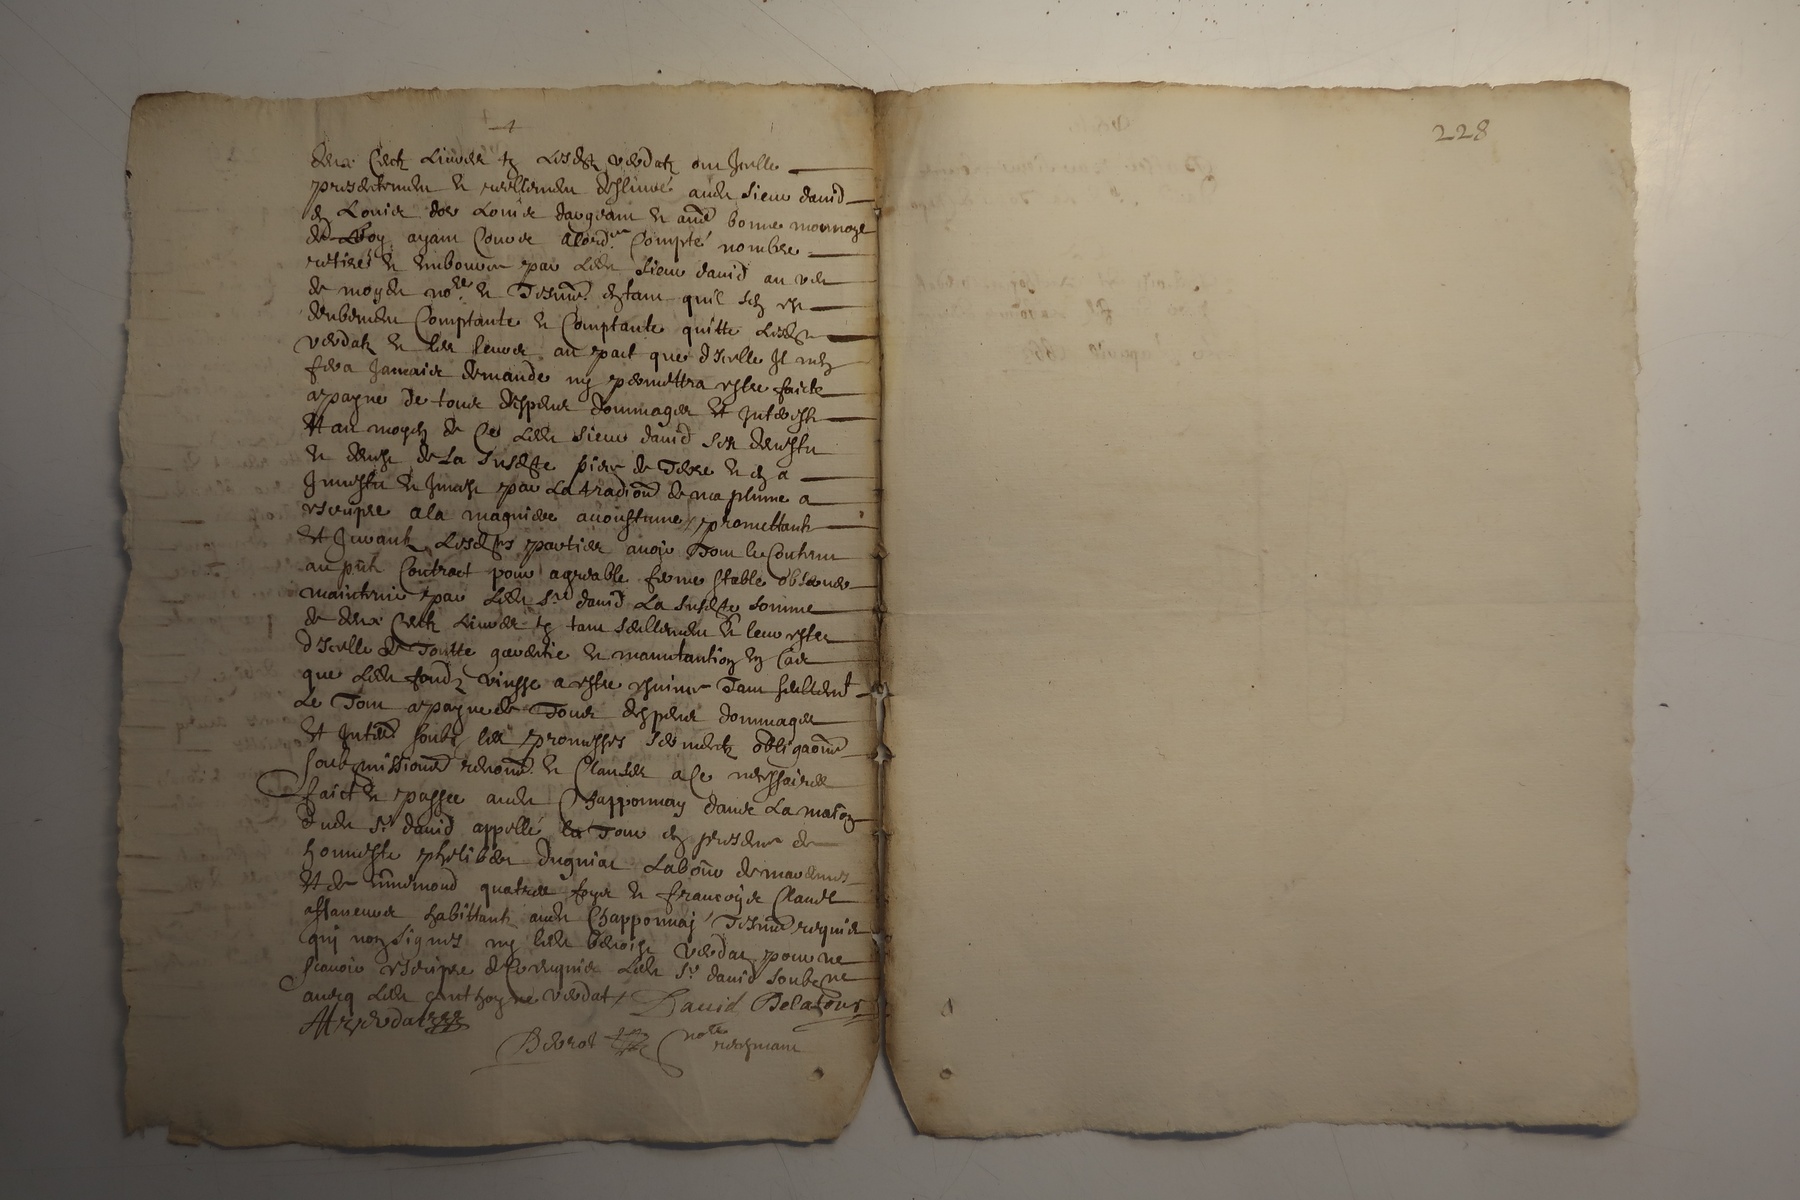 228
deux Centz Livres tz Lesdtz verdatz ont Jcelle
presentement et reellement deslivré audt sieur david
en Louis dor Louis dargeant et autre bonne monnoye
de Roy ayant Cours alordre Compté nombre
retiré et Emboursé par Ledt sieur david au veu
de moydt nore et Tesmns en tant quil sen est
deubement Comptante et Comptante quitte Lesdts
verdatz et les leurs au pact que dJcelle Jl nen
fera Jamais demande ny permettra estre faicte
a payne de tous despens dommages Et Jnterestz
Et au moyen de Ce Ledt sieur david sest devestu
et de La susdtte piece de Terre et en a
Jnvestu et par La tradion de ma plume a
escripre a la magniere accoustumé promettant
Et Jurantz Lesdttes parties avoir Tout le Contenu
au pnt Contract pour agreable ferme stable observer
maintenir par Ledt sr david La susdtte somme
de deux Centz Livres tz tant seullement Et leur estre
dJcelle de Toutte garentie et manutantion En Cas
que Ledt fondz vinsse a estre esvincé Tant seullement
Le Tout a payne de Tous despens dommages
Et Jnterestz soubz les promesses sermentz obligaons
soubzmissions renons et Clauses a Ce necessaires
faict et passee audt Chapponnay dans La maison
dudt sr david appellé la Tour en presence de
honneste philibert dugniat Labour de marennes
Et de Ennemond quatre foys et francoys Claude
affaneurs habittantz audt Chapponnay Tesmns requis
qui nont signes ny ledt benoist verdat pour ne
scavoir escripre de Ce requis Ledt sr david soubzne
avecq Ledt anthoyne verdat
David Delatour
A verdat
nore